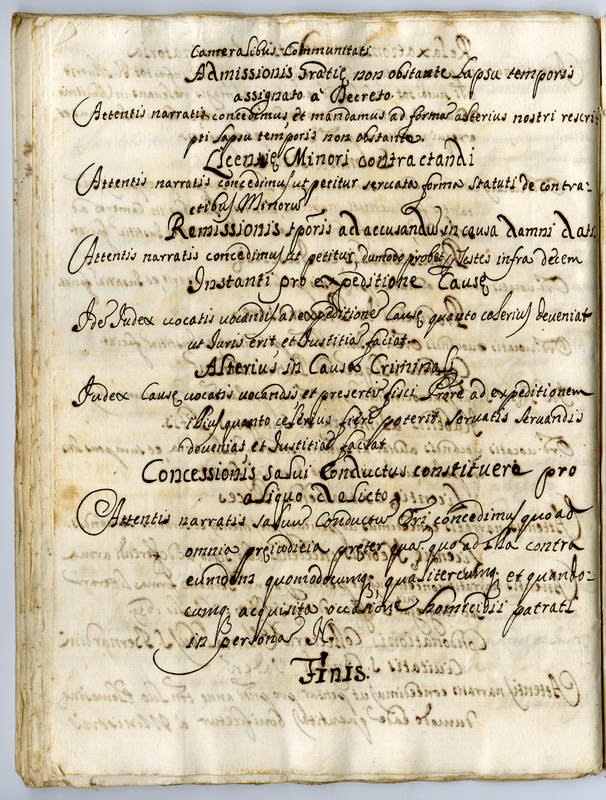 Cameralibus Communitati
Admissionis gratię non obstante lapsu temporis
assignato à Decreto
Attentis narratis concedimus et mandamus ad formā alterius nostri rescri-
pti lapsu temporis non obstante.
Licentię Minori contractandi
Attentis narratis concedimus ut petitur servata forma Statuti de contra-
ctibus Minorū
Remissionis tporis ad accusandū in causa damni dati
Attentis narratis concedimus ut petitur, dumodo probet Testes infra decem
Instanti pro expeditione Causę
Idē Judex vocatis vocandis ad expeditionē Causę quanto celerius deveniat
ut Juris erit et Justitiā faciat.
Alterius in Causa Criminali
Judex Causę vocatis vocandis et presertī fisci Prore ad expeditionem
illius quanto celerius fieri poterit servatis servandis
deveniat et Justitiā faciat
Concessionis salui Conductus constituere pro
aliquo delicto
Attentis narratis saluū Conductū Ori concedimus quo ad
omnia preiudicia preter quā quo ad illa contra
eumdem quomodocumq; qualitercumq; et quando-
cumq; acquisita occasione homicidii patrati
in persona N.
Finis.